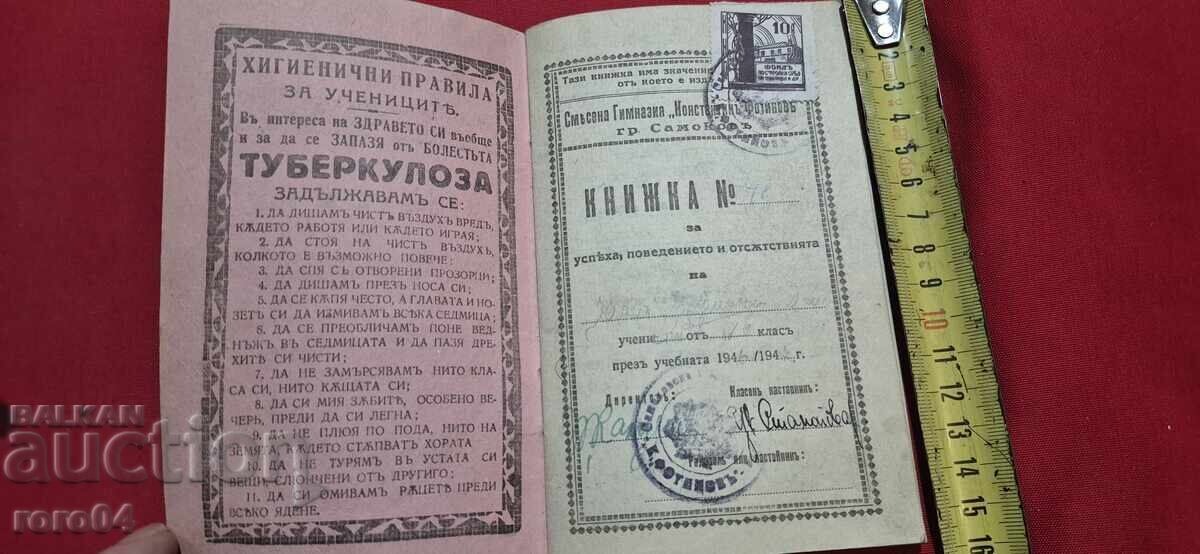 ХИГИЕНИЧНИ ПРАВИЛА
ЗА УЧЕНИЦИТѢ.
Въ интереса на ЗДРАВЕТО СИ въобще
и за да се ЗАПАЗЯ отъ БОЛЕСТЬТА
ТУБЕРКУЛОЗА
ЗАДЪЛЖАВАМЪ СЕ:
1. ДА ДИШАМЪ ЧИСТЪ ВЪЗДУХЪ ВРЕДЪ,
КѪДЕТО РАБОТЯ ИЛИ КѪДЕТО ИГРАЯ;
2. ДА СТОЯ НА ЧИСТЪ ВЪЗДУХЪ,
КОЛКОТО Е ВЪЗМОЖНО ПОВЕЧЕ;
3. ДА СПЯ СЪ ОТВОРЕНИ ПРОЗОРЦИ;
4. ДА ДИШАМЪ ПРЕЗЪ НОСА СИ;
5. ДА СЕ КѪПЯ ЧЕСТО, А ГЛАВАТА И НО-
ЗЕТѢ СИ ДА ИЗМИВАМЪ ВСѢКА СЕДМИЦА;
6. ДА СЕ ПРЕОБЛИЧАМЪ ПОНЕ ВЕД-
НЪЖЪ ВЪ СЕДМИЦАТА И ДА ПАЗЯ ДРЕ-
ХИТѢ СИ ЧИСТИ;
7. ДА НЕ ЗАМЪРСЯВАМЪ НИТО КЛА-
СА СИ, НИТО КѪЩАТА СИ;
8. ДА СИ МИЯ ЗѪБИТѢ, ОСОБЕНО ВЕ-
ЧЕРЬ, ПРЕДИ ДА СИ ЛЕГНА;
9. ДА НЕ ПЛЮЯ ПО ПОДА, НИТО НА
ЗЕМЯТА, КѪДЕТО СТѪПВАТЪ ХОРАТА
10. ДА НЕ ТУРЯМЪ ВЪ УСТАТА СИ
ВЕЩИ, СЛЮНЧЕНИ ОТЪ ДРУГИГО;
11. ДА СИ ОМИВАМЪ РѪЦЕТѢ ПРЕДИ
ВСѢКО ЯДЕНЕ.
10
ФОНДЪ
Тази книжка има значение
отъ което е изд
Смѣсена Гимназия „Константинъ Фотиновъ
гр. Самоковъ
КНИЖКА №
за
успѣха, поведението и отсѫтствията
на
учени отъ класъ
презъ учебната 194 /194 г.
Директоръ:
Класенъ наставникъ:
Родитель или настойникъ:
К. ФОТИНОВЪ
2 3 4 5 6 7 8 9 10 11 12 13 14 15 16
BALKAN
auction
roro04